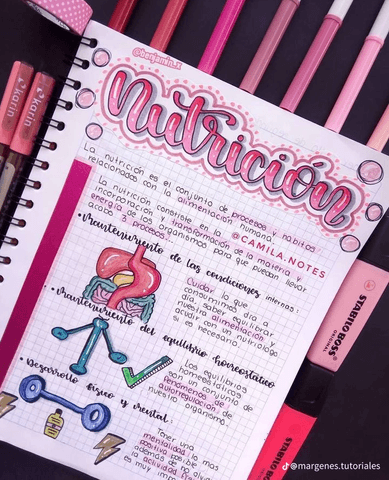 @benjamin_x
Nutrición
La nutrición es el conjunto de procesos y hábitos
relacionados con la alimentación humana.
La nutrición consiste en la
incorporación y transformación de la materia y
energía de los organismos para que puedan llevar
acabo 3 procesos:
@CAMILA.NOTES
Mantenimiento de las condiciones internas:
Cuidar lo que día a
consumimos
día, saber equilibrar
nuestra alimentación y
acudir con un nutriólogo
si es necesario.
Mantenimiento del equilibrio homeostático
Los equilibrios
homeostáticos
son un conjunto de
fenómenos de
autorregulación de
nuestro organismo.
Desarrollo físico y mental:
Tener una
mentalidad lo mas
positiva posible
además de no olvidar
la actividad
es muy
karin
karin
STABILO BOSS
ORIGINAL
STABILO BOSS
@margenes.tutoriales